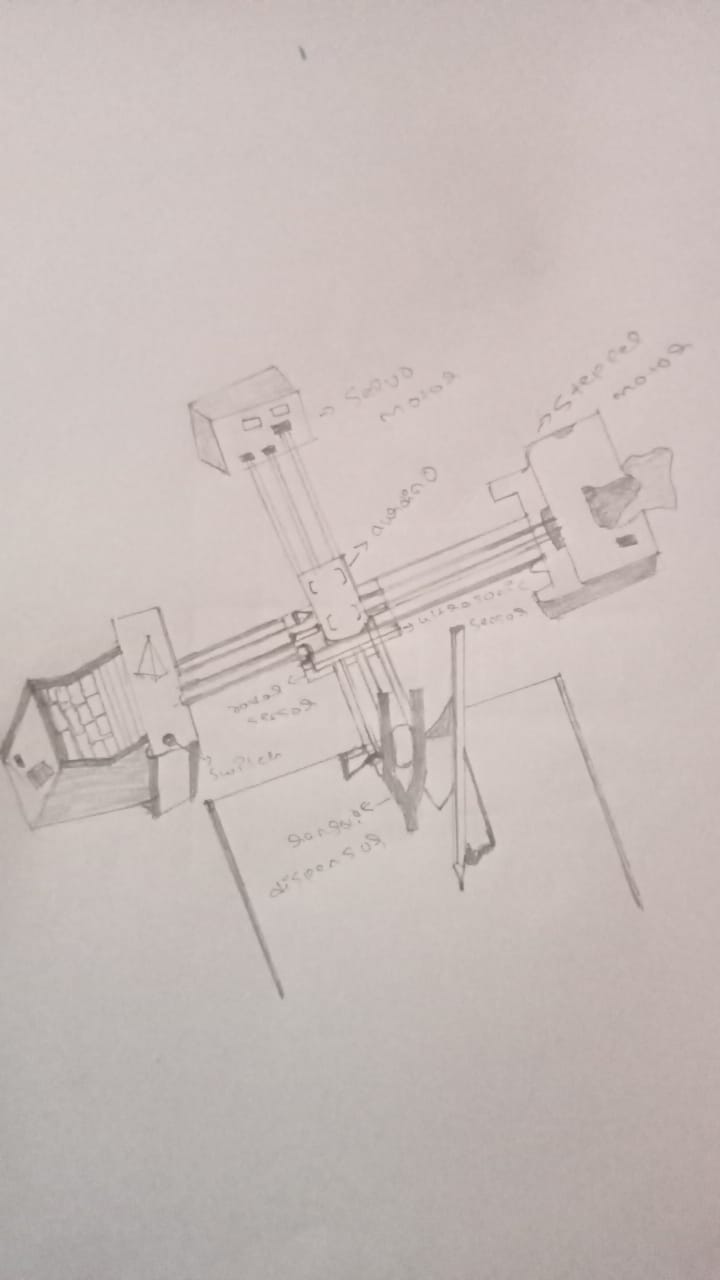 Servo
motor
stepper
motor
aurdino
ultrasonic
sensor
sensor
switch
dispensur